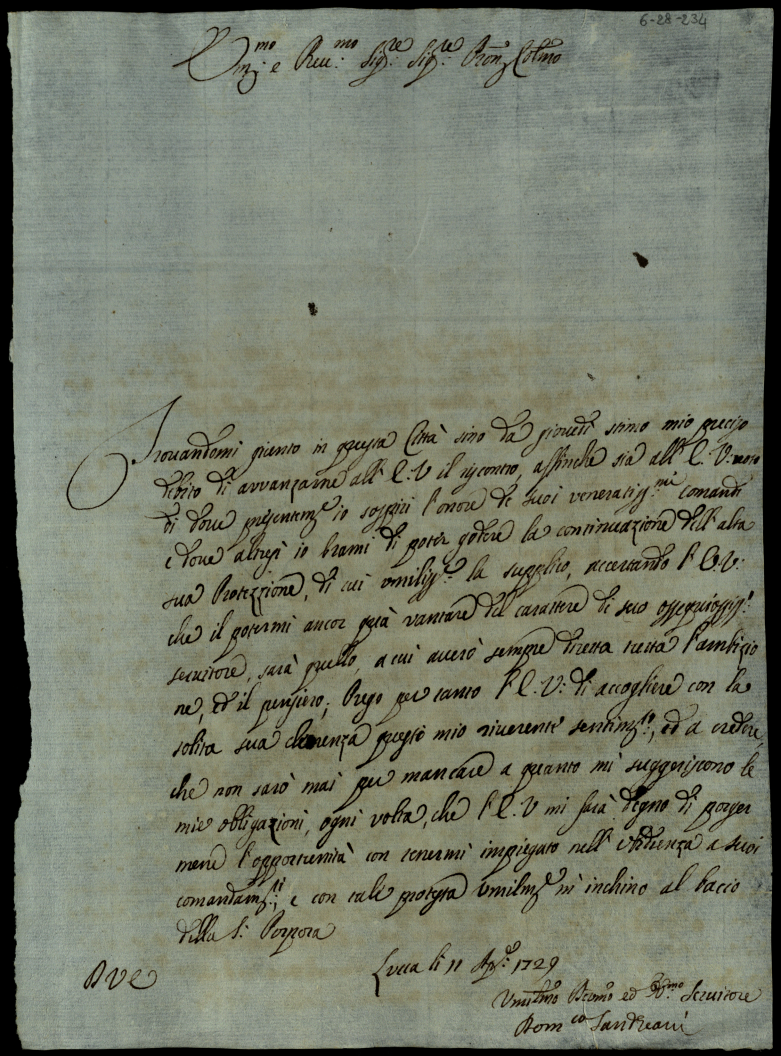 6-28-234
Em:mo e Reu:mo Sig:re Sig:re Pron Colmo
Trouandomi giunto in questa Città sino da giouedi stimo mio preciso
debito di avvanzarne all' E. V il riscontro, affinche sia all' E. V: noto
di doue presentemte io sospiri l'onore de suoi veneratiss:mi comandi
e doue altresì io brami di poter godere la continuazione dell' alta
sua Protezzione, di cui vmiliss:te la supplico, accertando l' E. V:
che il potermi ancor quà vantare del carattere di suo ossequiosiss:o
seruitore, sarà quello, a cui auerò sempre diretta tutta l'ambizio
ne, ed il pensiero; Prego per tanto l' E. V: di accogliere con la
solita sua clemenza questo mio riuerente sentimto, ed a credere,
che non sarò mai per mancare a quanto mi suggeriscono le
mie obbligazioni, ogni volta, che l' E. V mi farà degno di porger
mene l'opportunità con tenermi impiegato nell' vbidienza a suoi
comandamti; e con tale protesta vmilmte m' inchino al baccio
della S: Porpora
D V E
Lucca li 11 Ap: 1729
Vmilmo Deumo ed Obmo Seruitore
Dom:co Sandreani